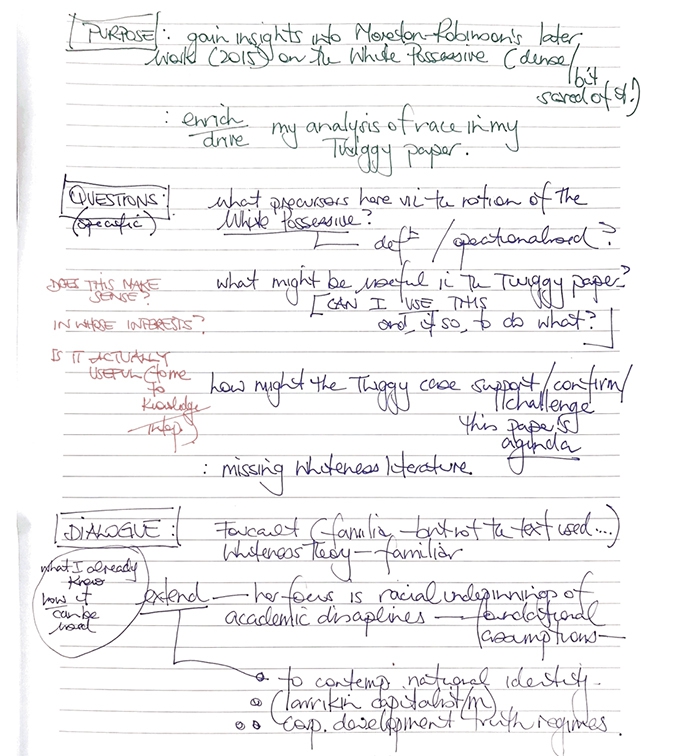 PURPOSE : gain insights into Moreton-Robinson's later
work (2015) on the White Possessive (dense/
bit
scared of it!)
: enrich
drive
my analysis of race in my
Twiggy paper.
QUESTIONS:
(specific)
what precursors here vis the notion of the
White Possessive?
/ operationalised?
what might be useful in the Twiggy paper?
[CAN I USE THIS
and, if so, to do what?]
DOES THIS MAKE
SENSE?
IN WHOSE INTERESTS?
IS IT ACTUALLY
USEFUL (to me
to
Knowledge
how might the Twiggy case support/confirm/
challenge
this paper's
agenda
: missing Whiteness literature
DIALOGUE:
Foucault (familiar - but not the text used....)
Whiteness - familiar
what I already
know
how it
can be
used
extend - her focus is racial underpinnings of
academic disciplines - foundational
assumptions -
to contemp. national identity.
(larrikin capitalist/m)
corp. development truth regimes.